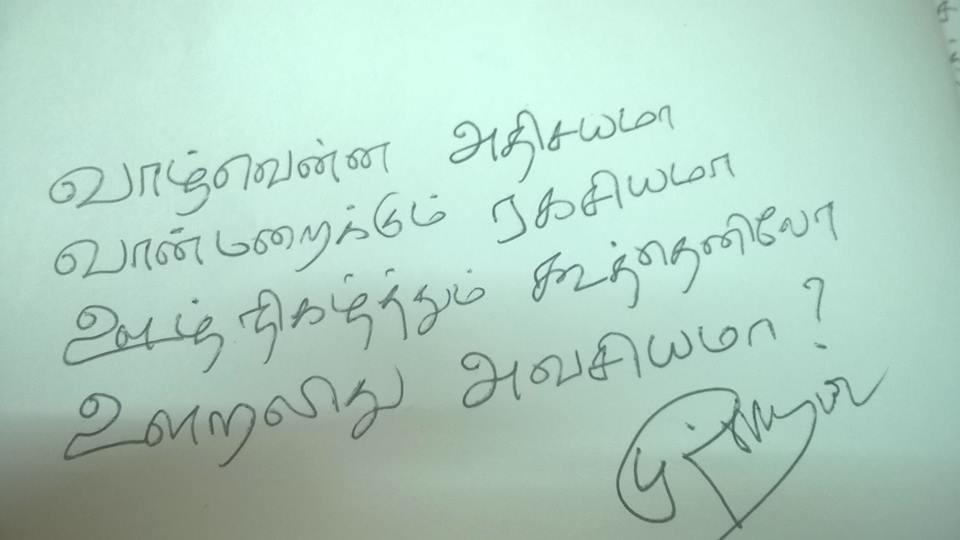 வாழ்வென்ன அதிசயமா
வான்மறைக்கும் ரகசியமா
ஊழ் நிகழ்த்தும் கூத்தெனிலோ
உளறலிது அவசியமா?